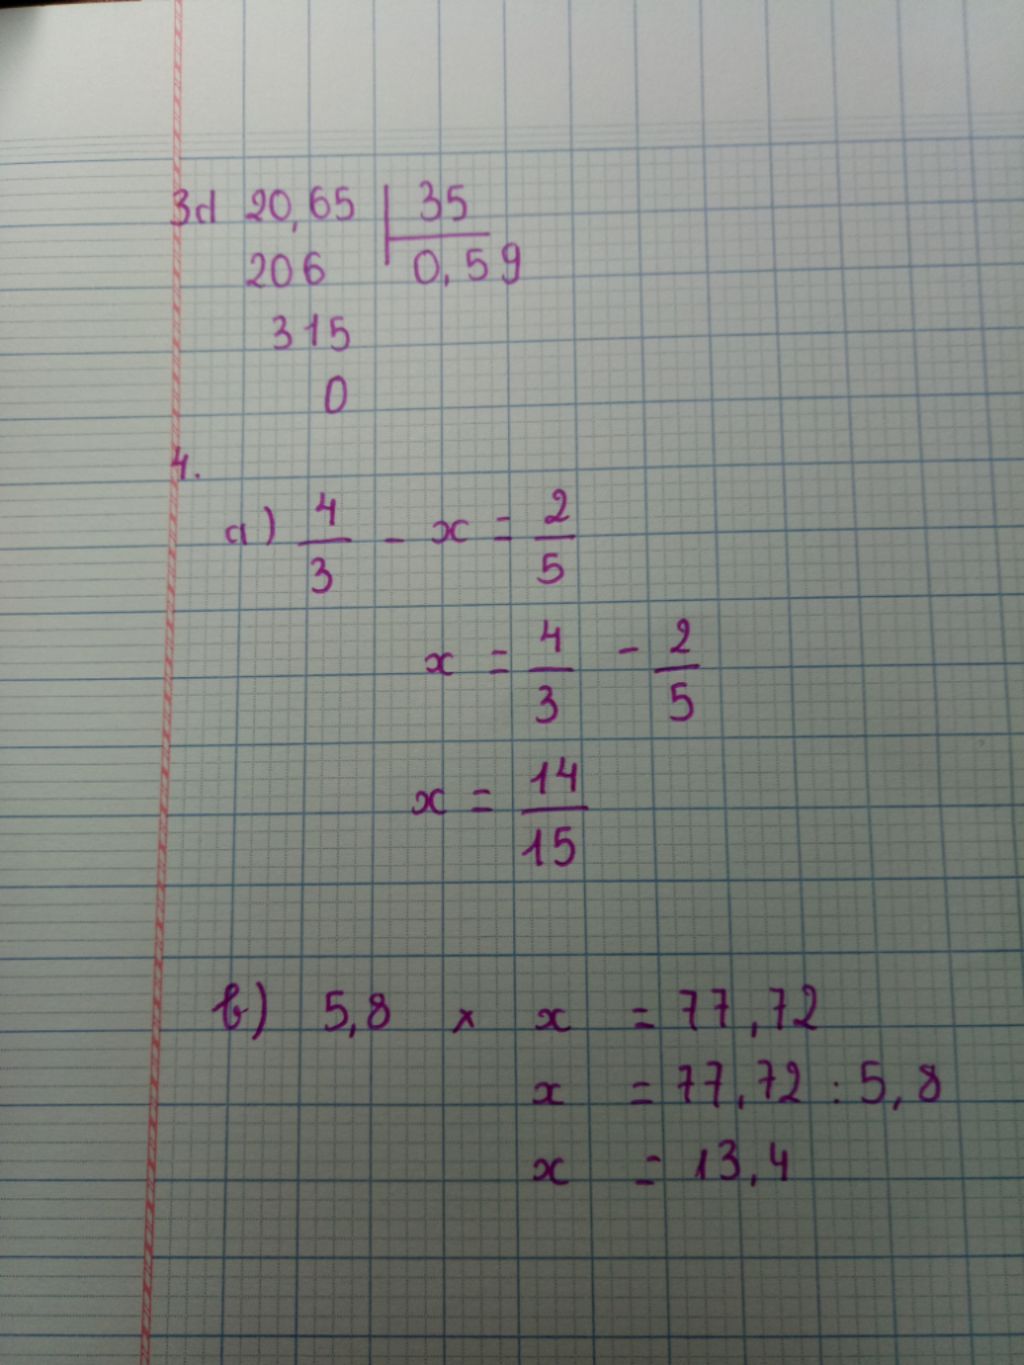 3d 20,65 | 35
206 0,59
315
0
4.
a) 4/3 - x = 2/5
x = 4/3 - 2/5
x = 14/15
b) 5,8 x x = 77,72
x = 77,72 : 5,8
x = 13,4